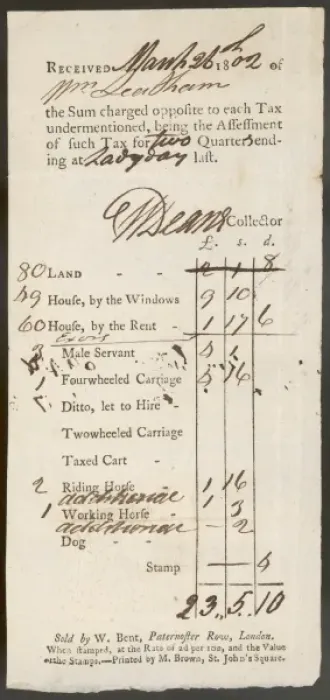 RECEIVED March 26th 1802 of
Wm Leatham
the Sum charged opposite to each Tax
undermentioned, being the Assessment
of such Tax for two Quarters end-
ing at Ladyday last.
W Deane Collector
£. s. d.
80 LAND - - 2 1 8
49 House, by the Windows 9 10
60 House, by the Rent - 1 17 6
2 Male Servant - 4 1
1 Fourwheeled Carriage 4 16
Ditto, let to Hire -
Twowheeled Carriage
Taxed Cart -
2 Riding Horse - 1 16
additional
1 Working Horse - 1 3
additional — 2
Dog - -
Stamp — 4
23 . 5 . 10
Sold by W. Bent, Paternoster Row, London.
When stamped, at the Rate of 2d per 100, and the Value
of the Stamps.—Printed by M. Brown, St. John's Square.